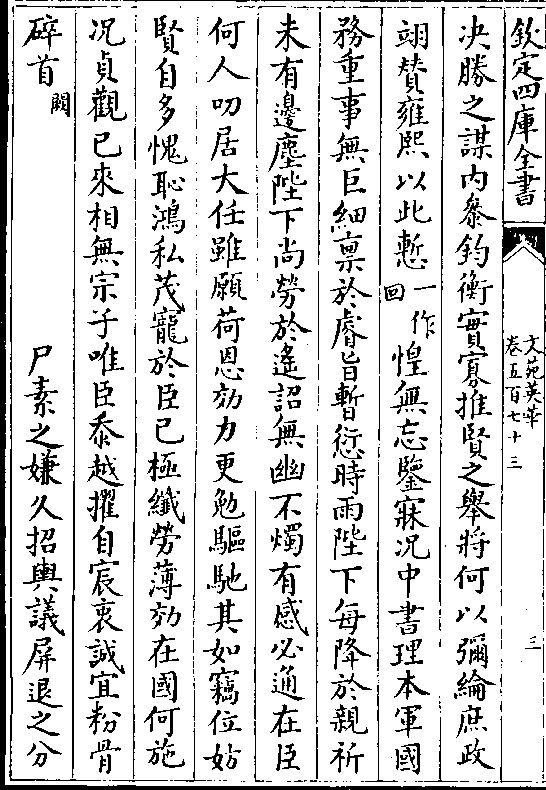 欽定四庫全書
文苑英華
卷五百七十三
三
决勝之謀内叅鈞衡實寡推賢之舉將何以彌綸庶政
翊賛雍熙以此慙一作回惶無忘鑒寐况中書理本軍國
務重事無巨細禀於睿旨暫愆時雨陛下每降於親祈
未有邊塵陛下尚勞於遙詔無幽不燭有感必通在臣
何人叨居大任雖願荷恩効力更勉驅馳其如竊位妨
賢自多愧恥鴻私茂寵於臣已極纖勞薄効在國何施
况貞觀已來相無宗子唯臣忝越擢自宸衷誠宜粉骨
碎首闕　尸素之嫌久招輿議屏退之分